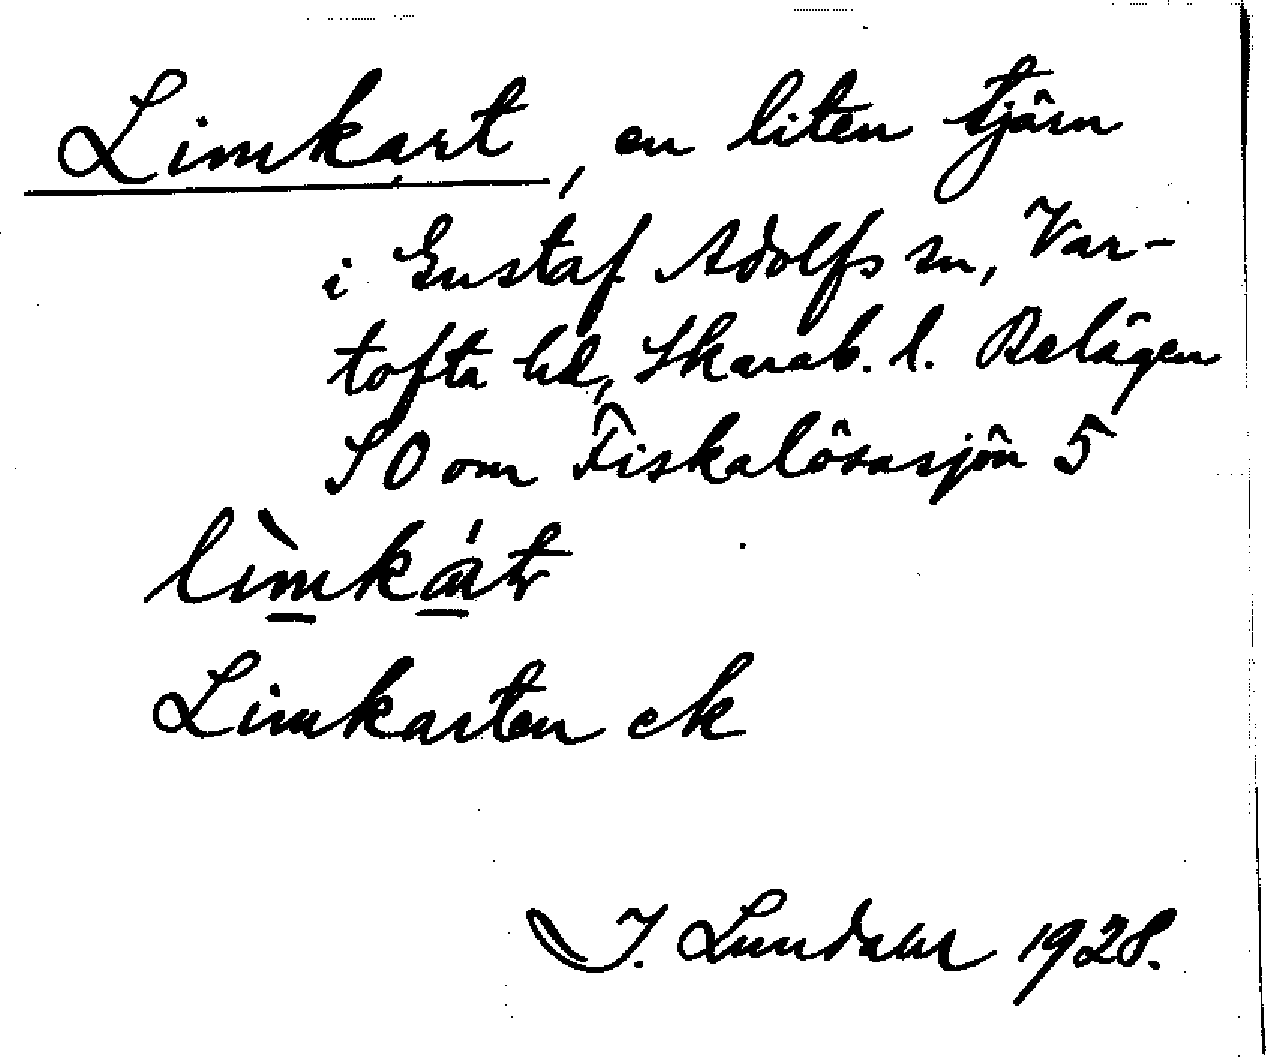 Limkart, en liten tjärn
i Gustaf Adolfs sn, Var-
tofta hd, Skarab. l. Belägen
SO om Fiskalösasjön 5
Limkarten ek
J. Lundahl 1928.